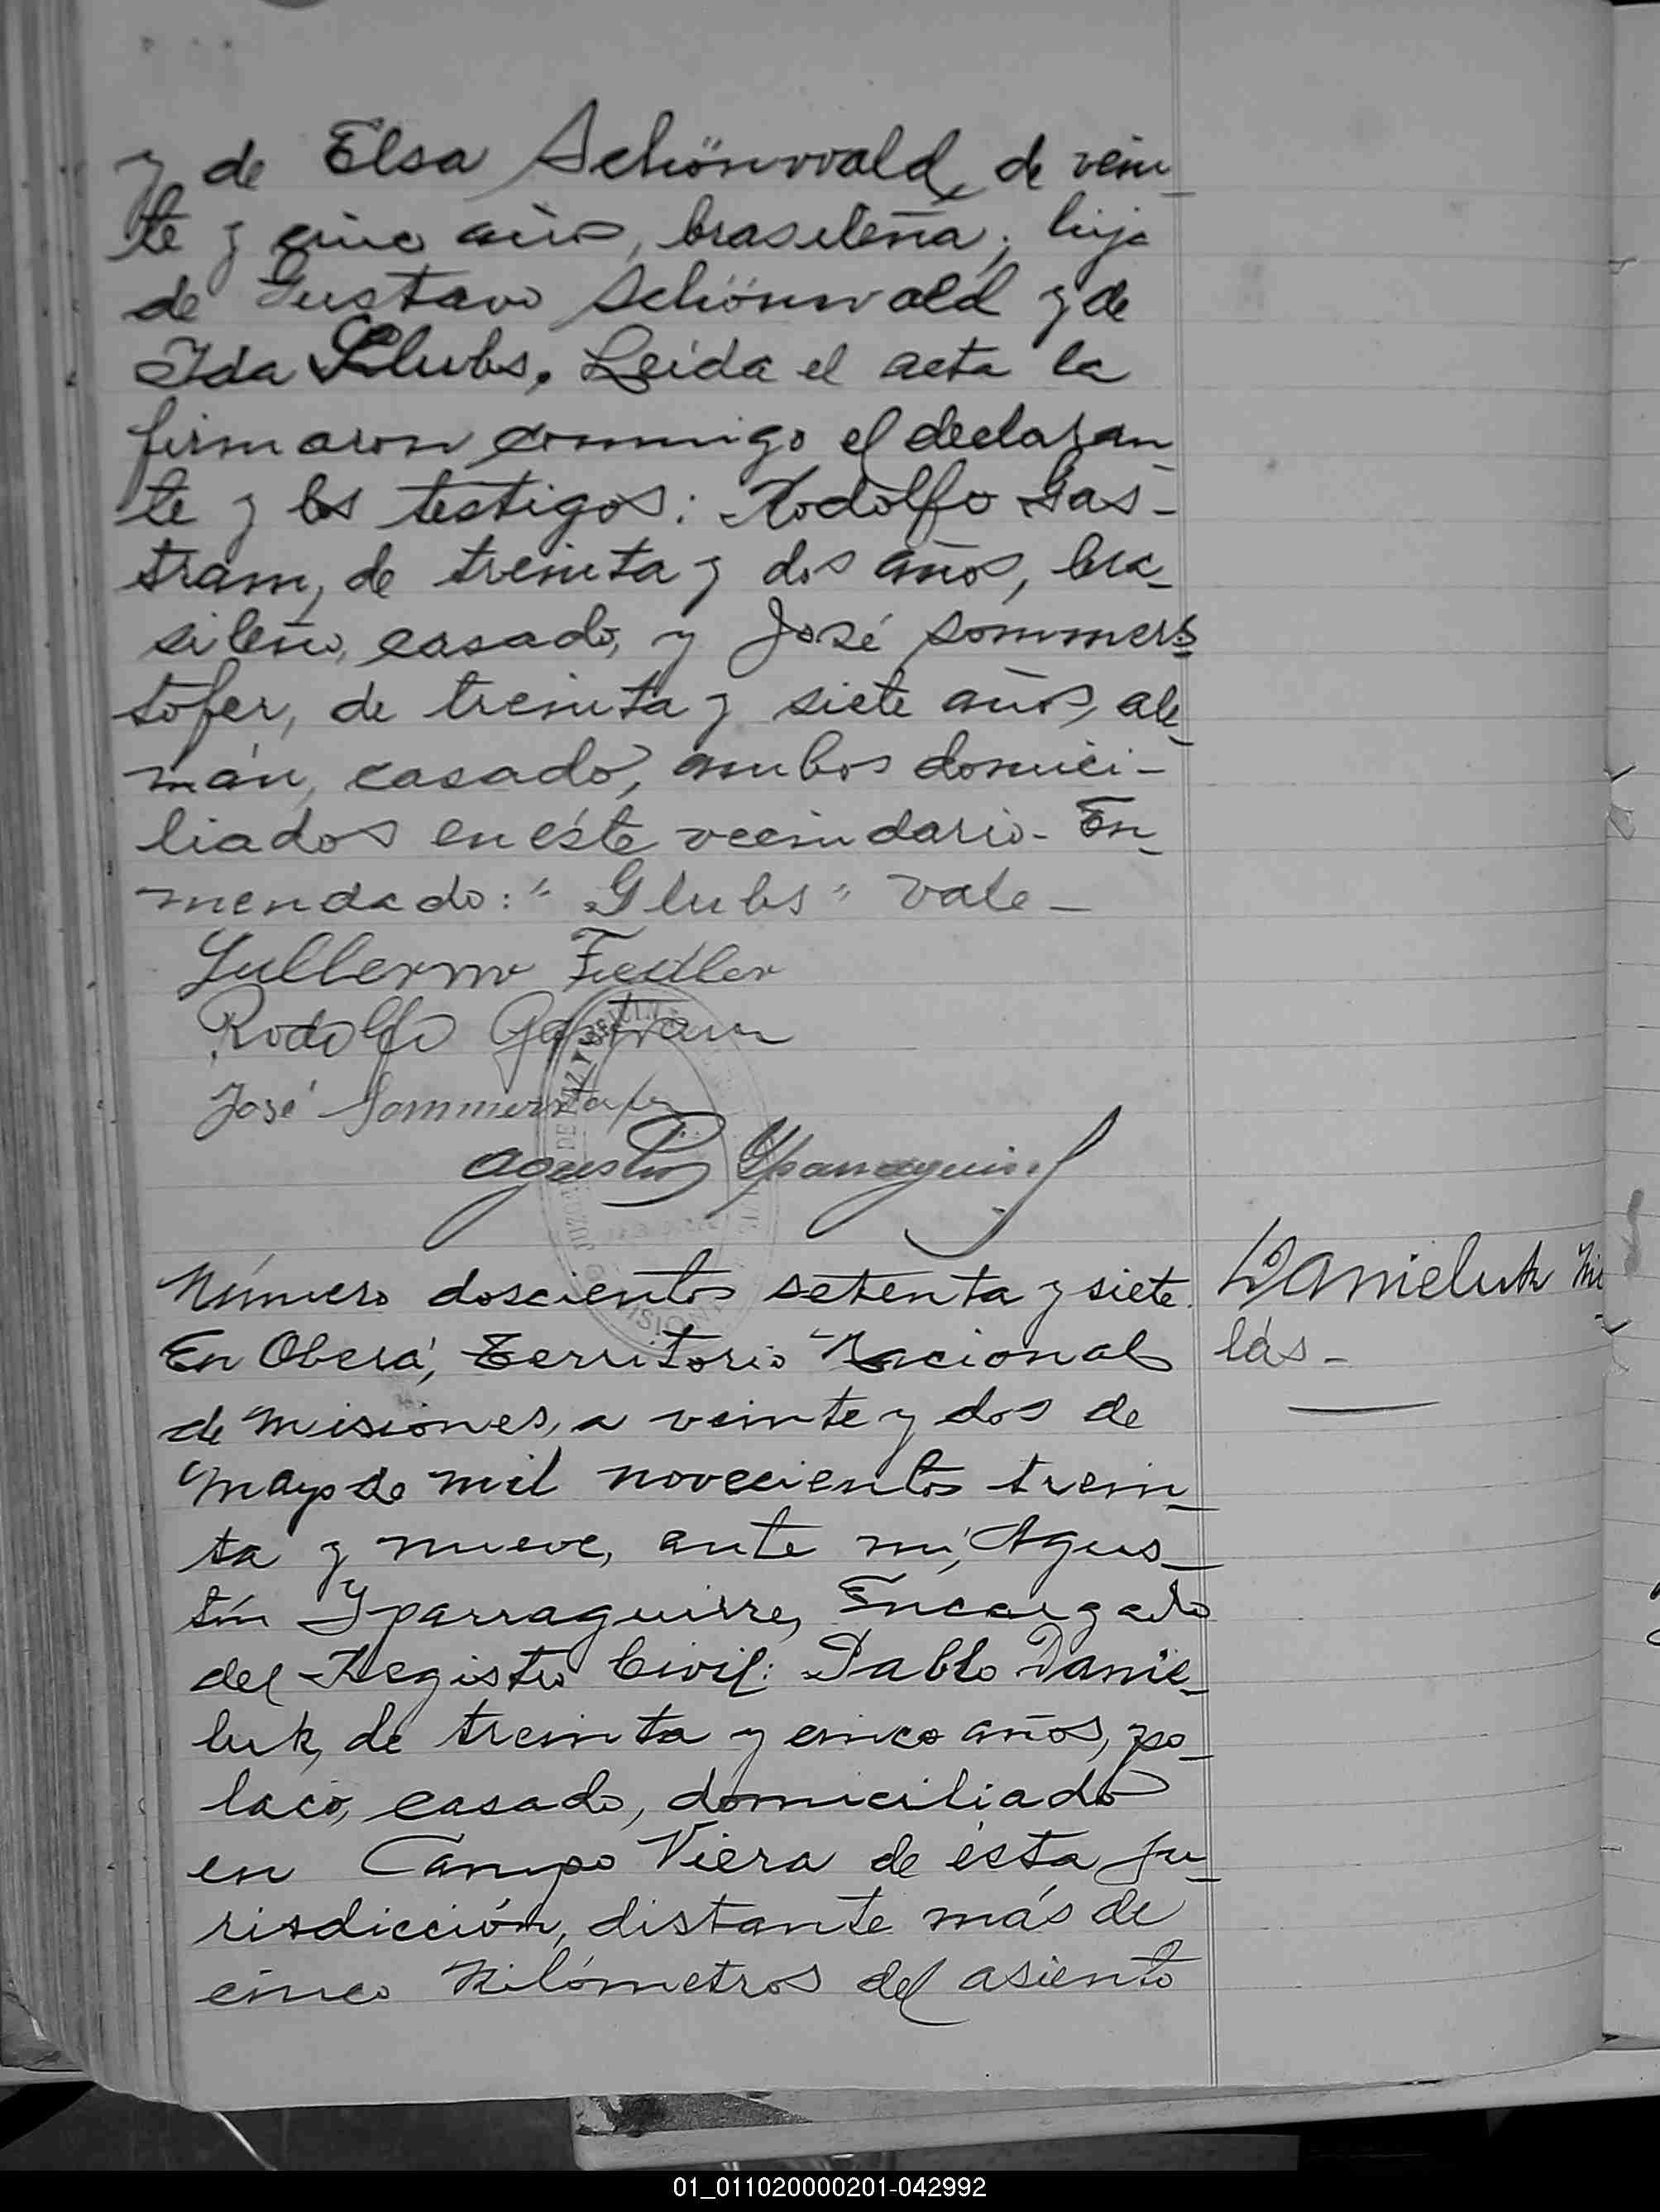 y de Elsa Schönwald, de vein-
te y cinco años, brasileña, hija
de Gustavo Schönwald y de
Ida Glubs. Leída el acta la
firmaron conmigo el declaran-
te y los testigos: Rodolfo Gas-
tram, de treinta y dos años, bra-
sileño, casado, y José Sommers-
tofer, de treinta y siete años, ale-
mán, casado, ambos domici-
liados en éste vecindario- En-
mendado: "Glubs" vale-
Gullermo Fiedler
Rodolfo Gastram
José Sommerstofer
Agustín Yparraguirre
Número doscientos setenta y siete.
Danieluk Mi-
En Oberá, Territorio Nacional
lás-
de Misiones, a veinte y dos de
Mayo de mil novecientos trein-
ta y nueve, ante mí, Agus-
tín Yparraguirre, Encargado
del Registro Civil: Pablo Danie-
luk, de treinta y cinco años, po-
laco, casado, domiciliado
en Campo Viera de ésta ju-
risdicción, distante más de
cinco Kilómetros del asiento
01_011020000201-042992